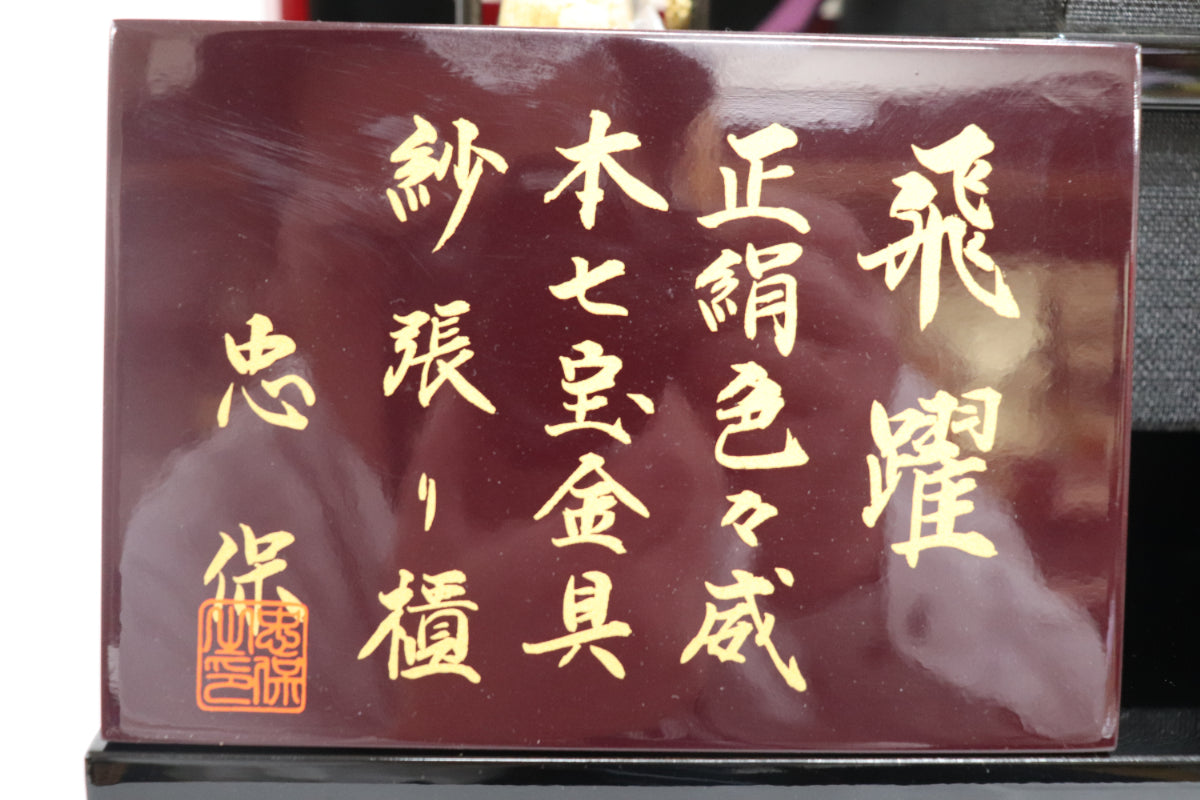 飛躍
正絹色々威
本七宝金具
紗張り櫃
忠保
忠保之印